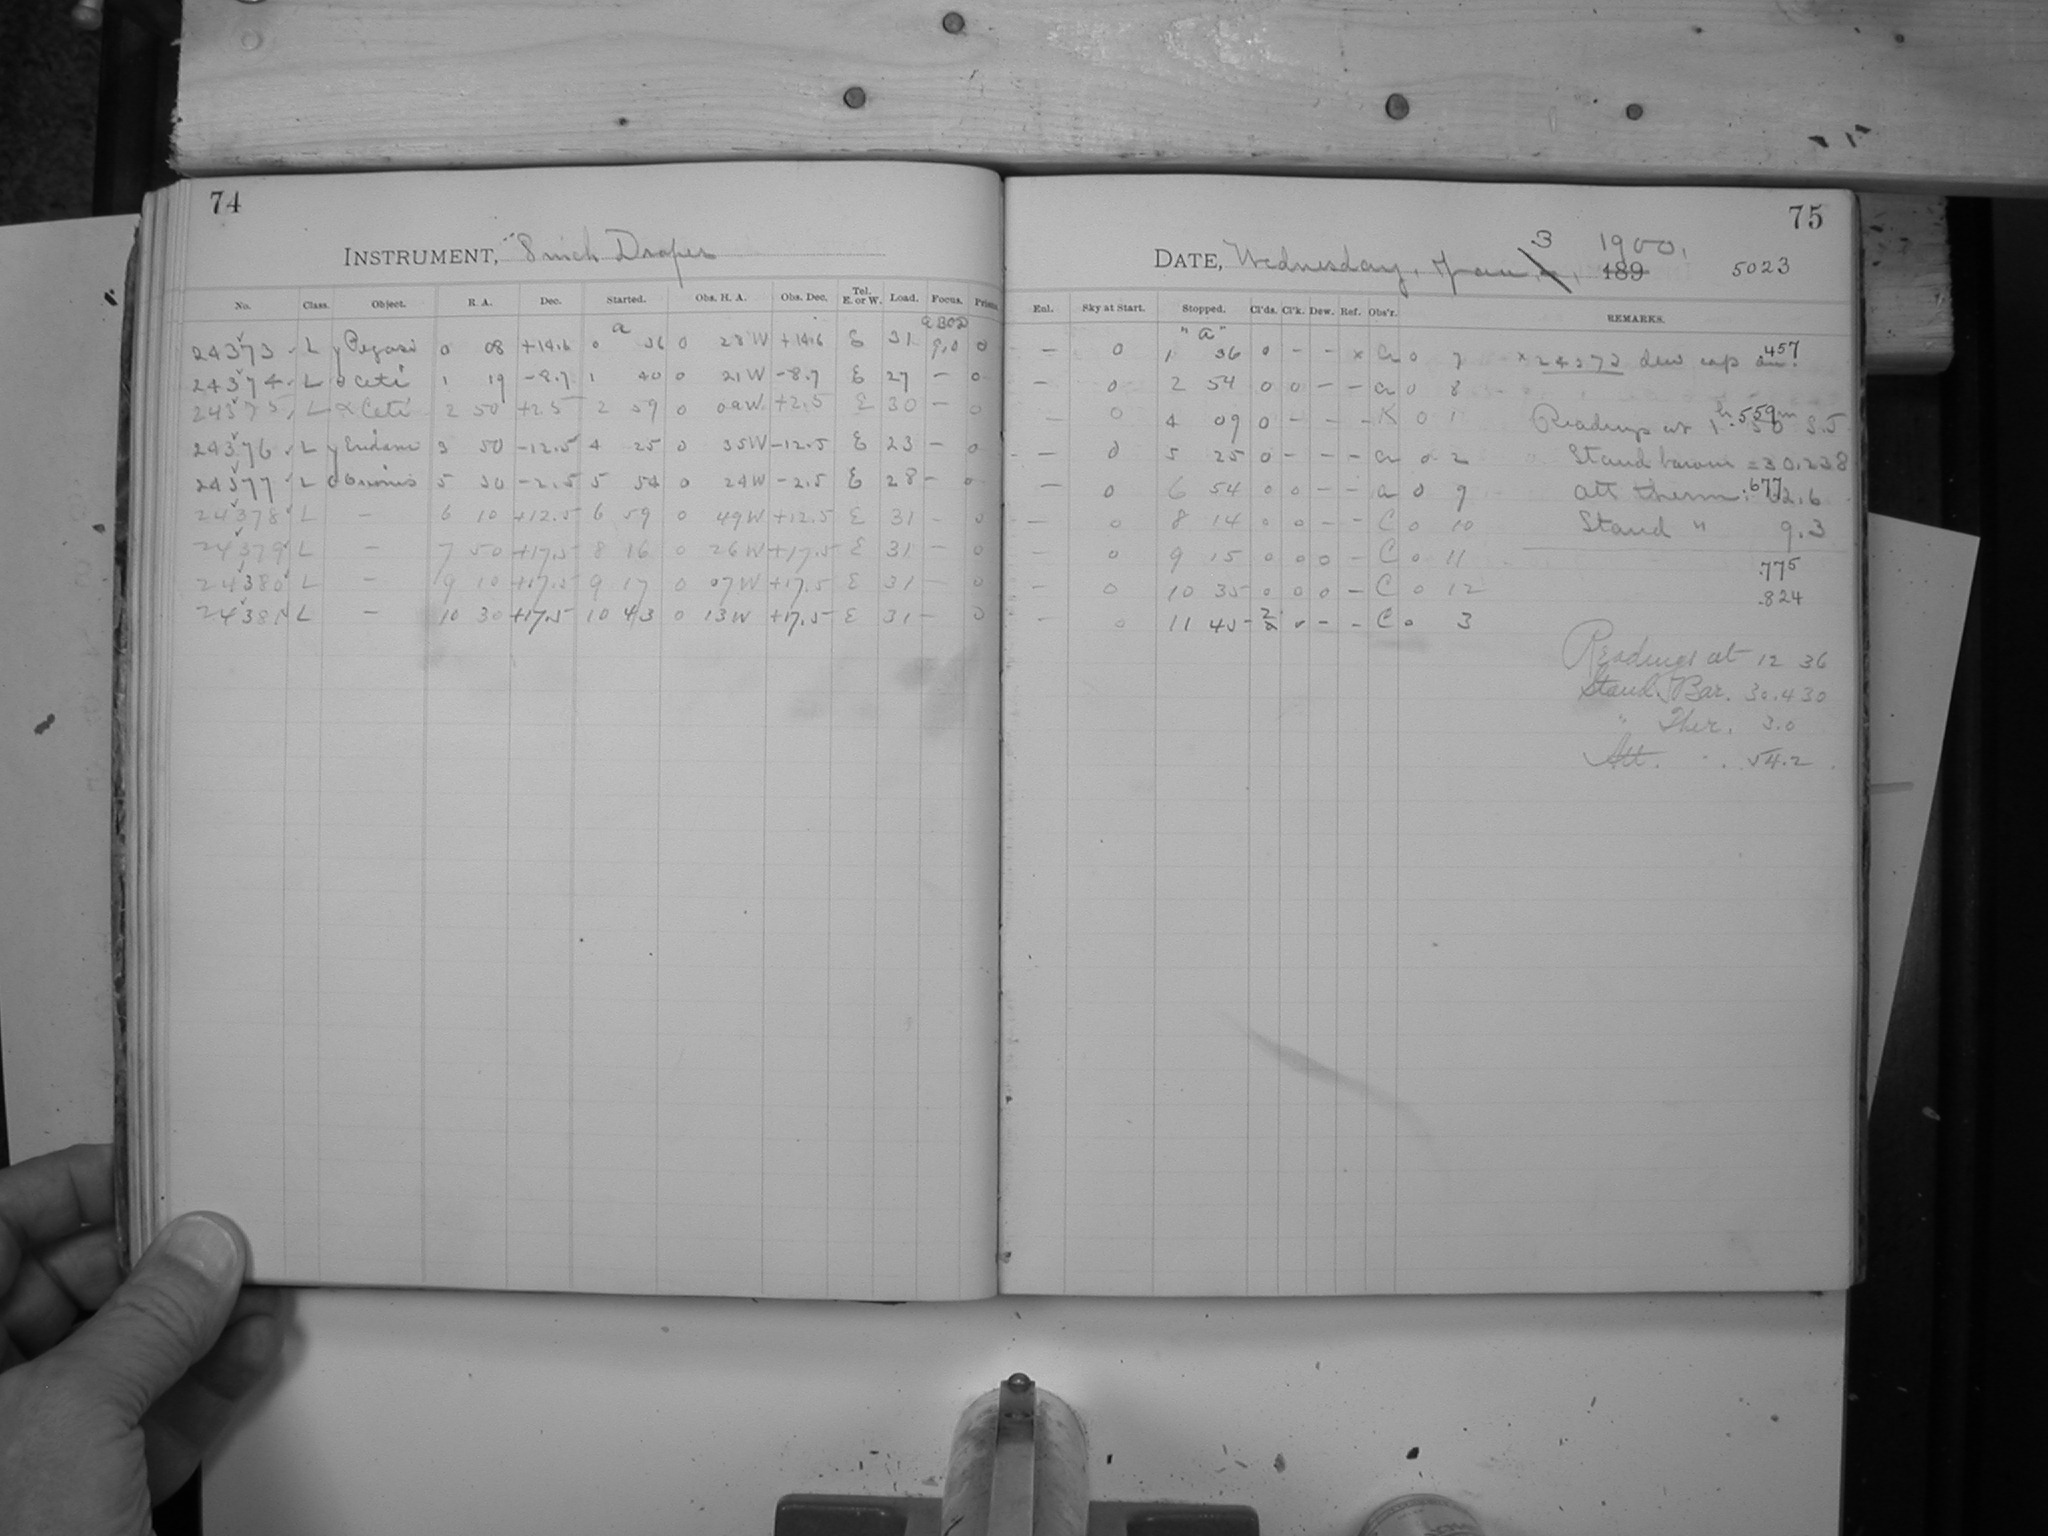 74
INSTRUMENT, 8 inch Draper
No. Class. Object. R. A. Dec. Started. Obs. H. A. Obs. Dec. Tel. E. or W. Load. Focus. Prisms
a
24373 L γ Pegasi 0 08 +14.6 0 36 0 28 W +14.6 E 31 9.0 0
24374 L θ Ceti 1 19 -8.7 1 40 0 21 W -8.7 E 27 - 0
24375 L α Ceti 2 50 +2.5 2 59 0 09 W +2.5 E 30 - 0
24376 L γ Eridani 3 50 -12.5 4 25 0 35 W -12.5 E 23 - 0
24377 L Orionis 5 30 -2.5 5 54 0 24 W -2.5 E 28 - 0
24378 L - 6 10 +12.5 6 59 0 49 W +12.5 E 31 - 0
24379 L - 7 50 +17.5 8 16 0 26 W +17.5 E 31 - 0
24380 L - 9 10 +17.5 9 17 0 07 W +17.5 E 31 - 0
24381 L - 10 30 +17.5 10 43 0 13 W +17.5 E 31 - 0
75
DATE, Wednesday, Jan 3 1900.
189 5023
Enl. Sky at Start. Stopped. Cl'ds. Cl'k. Dew. Ref. Obs'r. REMARKS.
"a"
- 0 1 36 0 - - x a 0 7 x 24373 dew cap on. 457
- 0 2 54 0 0 - - a 0 8
- 0 4 09 0 - - - K 0 1 Readings at 1h 50m S.S. .559
- 0 5 25 0 - - - a 0 2 Stand barom = 30.238
- 0 6 54 0 0 - - a 0 9 att therm. 62.6 .677
- 0 8 14 0 0 - - C 0 10 Stand " 9.3
- 0 9 15 0 0 0 - C 0 11 .775
- 0 10 35 0 0 0 - C 0 12 .824
- 0 11 45 2 - - C 0 3
Readings at 12 36
Stand. Bar. 30.430
" Ther. 3.0
Att. " 54.2